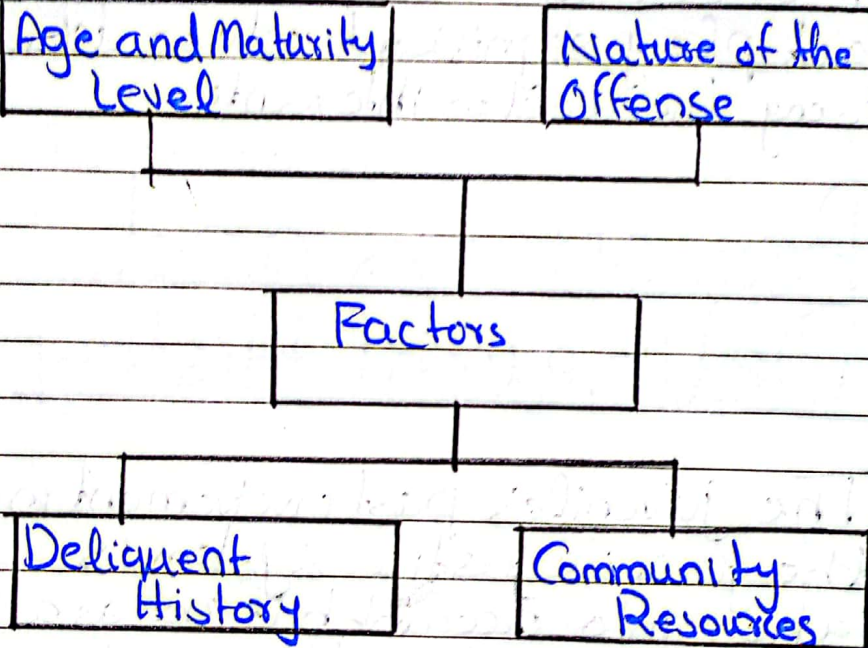 Age and Maturity
Level
Nature of the
Offense
Factors
Deliquent
History
Community
Resources